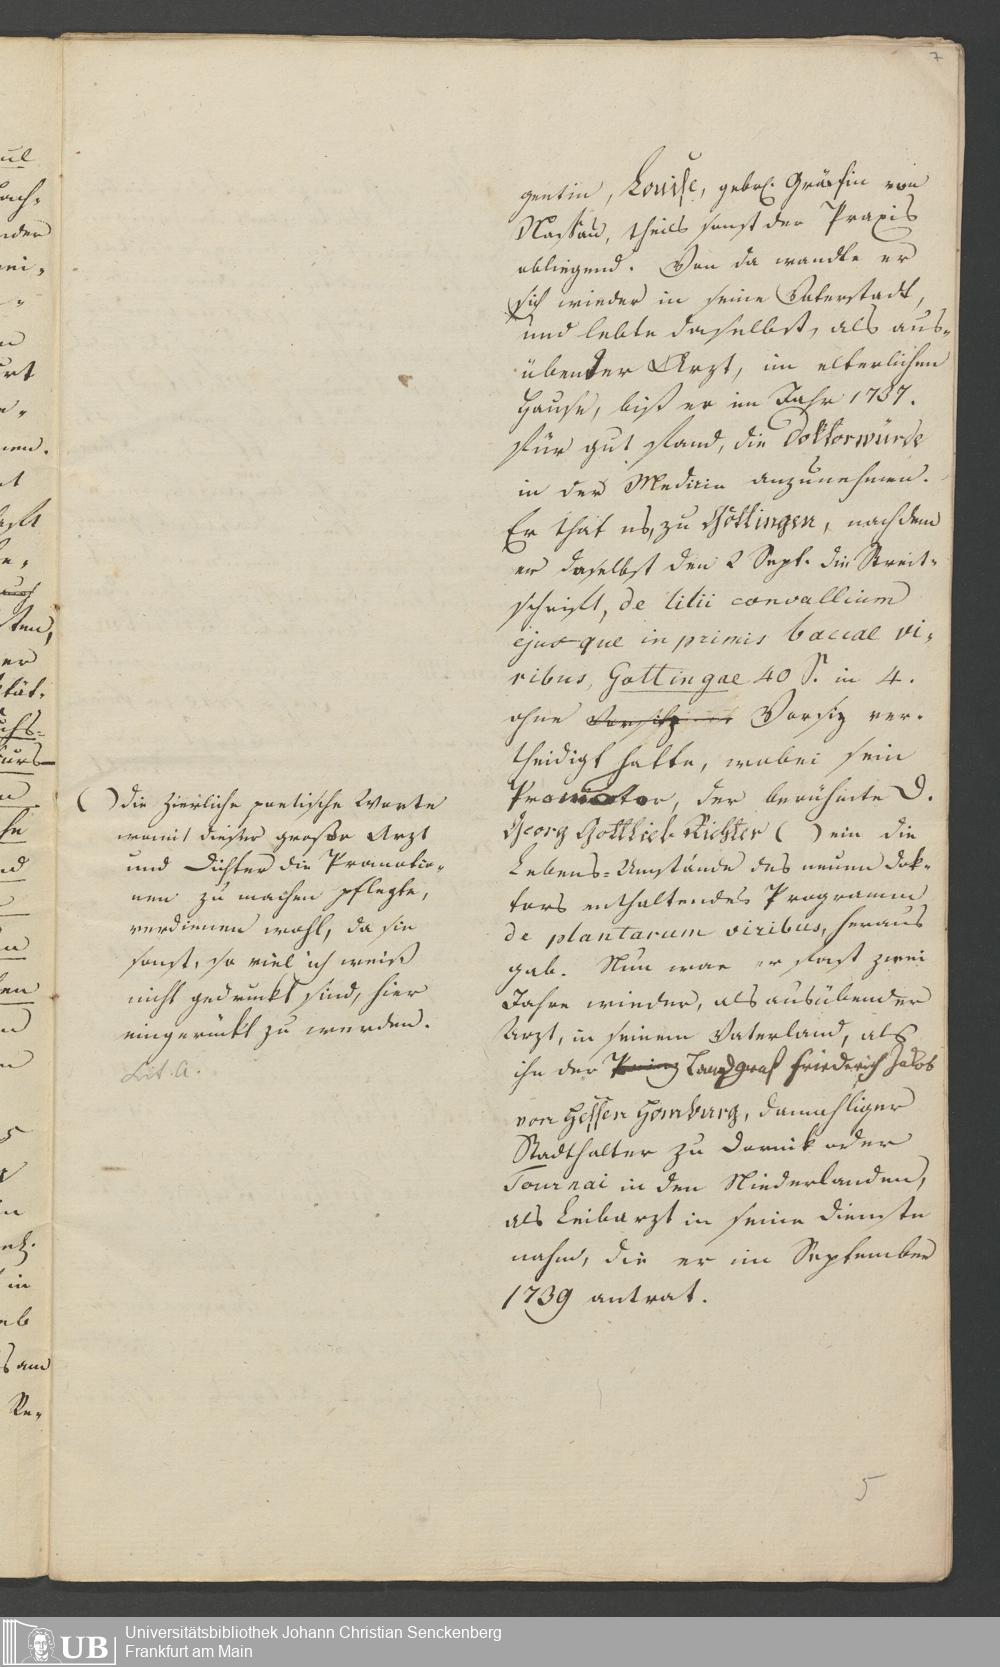 7
gentin, Louise, gebor. Gräfin von
Nassau, theils sonst der Praxis
obliegend. Von da wandte er
sich wieder in seine Vaterstadt,
und lebte daselbst, als aus-
übender Arzt, im elterlichen
Hause, biß er im Jahr 1737.
für gut fand, die Doktorwürde
in der Medicin anzunehmen.
Er that es, zu Göttingen, nachdem
er daselbst den 2 Sept. die Streit-
schrift, de lilii convallium
ejusque in primis baccae vi-
ribus, Gottingae 40 S. in 4.
ohne Vorsiz ver-
theidigt hatte, wobei sein
Promotor, der berühmte D.
Georg Gottlieb Richter ( ) ein die
Lebens-Umstände des neuen Dok-
tors enthaltendes Programm
de plantarum viribus, heraus
gab. Nun war er fast zwei
Jahre wieder, als ausübender
Arzt, in seinem Vaterland, als
ihn der Landgraf Friederich Jakob
von Hessen Homburg, damahliger
Stadthalter zu Dornik oder
Tournai in den Niederlanden,
als Leibarzt in seine Dienste
nahm, die er im September
1739 antrat.
( ) die zierliche poetische Worte
womit dieser große Arzt
und Dichter die Promotio-
nen zu machen pflegte,
verdienen wohl, da sie
sonst, so viel ich weiß
nicht gedruckt sind, hier
eingerückt zu werden.
Lit. A.
5
UB
Universitätsbibliothek Johann Christian Senckenberg
Frankfurt am Main